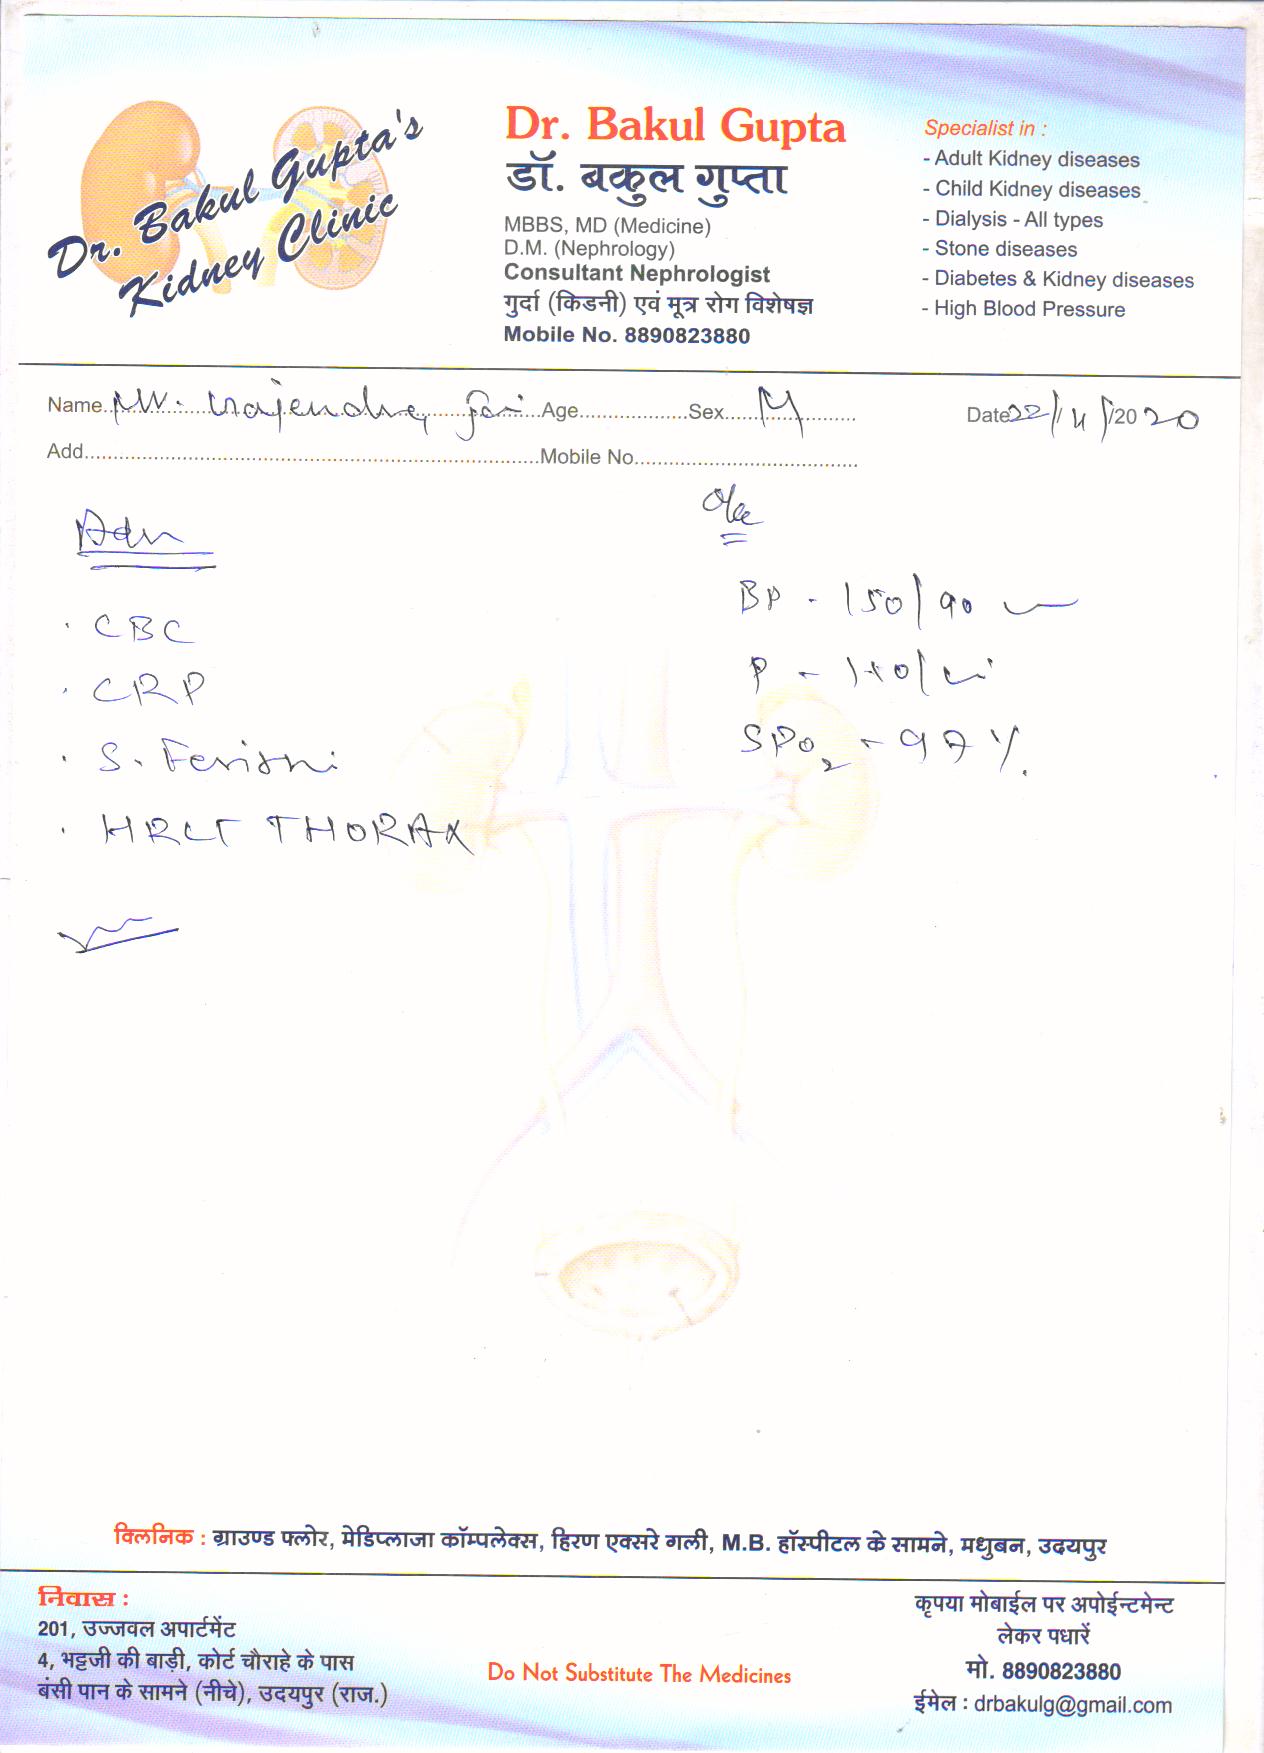 Dr. Bakul Gupta's
Kidney Clinic
Dr. Bakul Gupta
डॉ. बकुल गुप्ता
MBBS, MD (Medicine)
D.M. (Nephrology)
Consultant Nephrologist
गुर्दा (किडनी) एवं मूत्र रोग विशेषज्ञ
Mobile No. 8890823880
Specialist in :
- Adult Kidney diseases
- Child Kidney diseases
- Dialysis - All types
- Stone diseases
- Diabetes & Kidney diseases
- High Blood Pressure
Name Mr. Rajendra Age Sex M Date 22/ /2020
Add. Mobile No.
· CBC
· CRP
· S. Feritni
· HRCT THORAX
BP - 150/90
P -
SPO2 - 97 %.
क्लिनिक : ग्राउण्ड फ्लोर, मेडिप्लाजा कॉम्पलेक्स, हिरण एक्सरे गली, M.B. हॉस्पीटल के सामने, मधुबन, उदयपुर
निवास :
201, उज्जवल अपार्टमेंट
4, भट्टजी की बाड़ी, कोर्ट चौराहे के पास
बंसी पान के सामने (नीचे), उदयपुर (राज.)
Do Not Substitute The Medicines
कृपया मोबाईल पर अपोईन्टमेन्ट
लेकर पधारें
मो. 8890823880
ईमेल : drbakulg@gmail.com